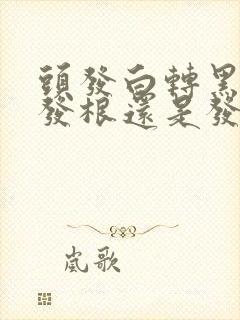 頭發白轉黑
發根還是發
嵐歌